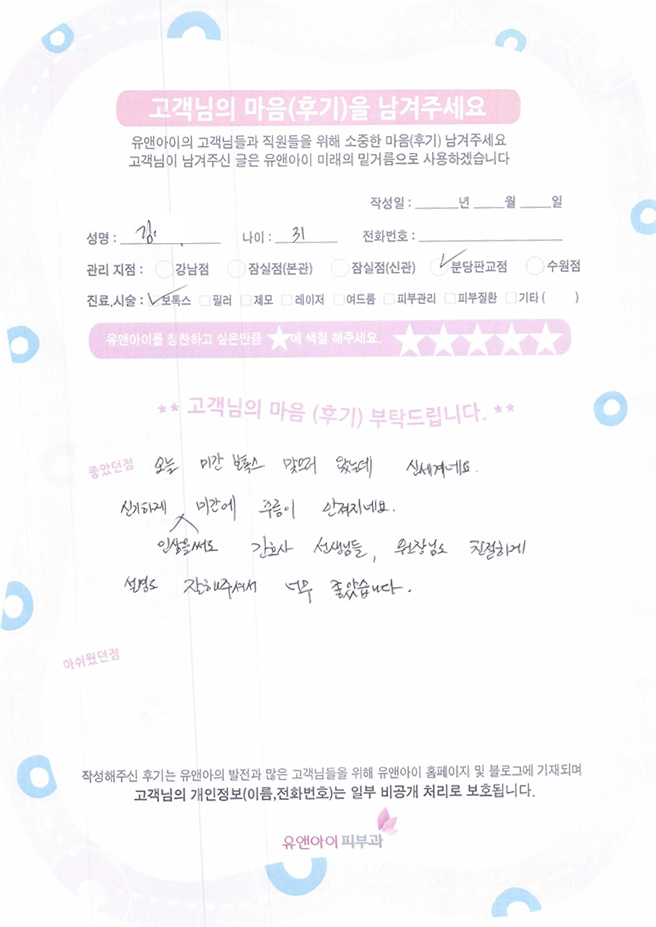 고객님의 마음(후기)을 남겨주세요
유앤아이의 고객님들과 직원들을 위해 소중한 마음(후기) 남겨주세요
고객님이 남겨주신 글은 유앤아이 미래의 밑거름으로 사용하겠습니다
작성일 : 년 월 일
성명 : 김 나이 : 31 전화번호 :
관리 지점 : 강남점 잠실점(본관) 잠실점(신관) 분당판교점 수원점
진료,시술 : 보톡스 필러 제모 레이저 여드름 피부관리 피부질환 기타 ( )
유앤아이를 칭찬하고 싶은만큼 ★에 색칠 해주세요. ★★★★★
** 고객님의 마음 (후기) 부탁드립니다. **
좋았던점 오늘 미간 보톡스 맞으러 왔는데 신세계네요.
신기하게 미간에 주름이 안져지네요.
인상을써도 간호사 선생님들, 원장님도 친절하게
설명도 잘해주셔서 너무 좋았습니다.
아쉬웠던점
작성해주신 후기는 유앤아의 발전과 많은 고객님들을 위해 유앤아이 홈페이지 및 블로그에 기재되며
고객님의 개인정보(이름,전화번호)는 일부 비공개 처리로 보호됩니다.
유앤아이피부과